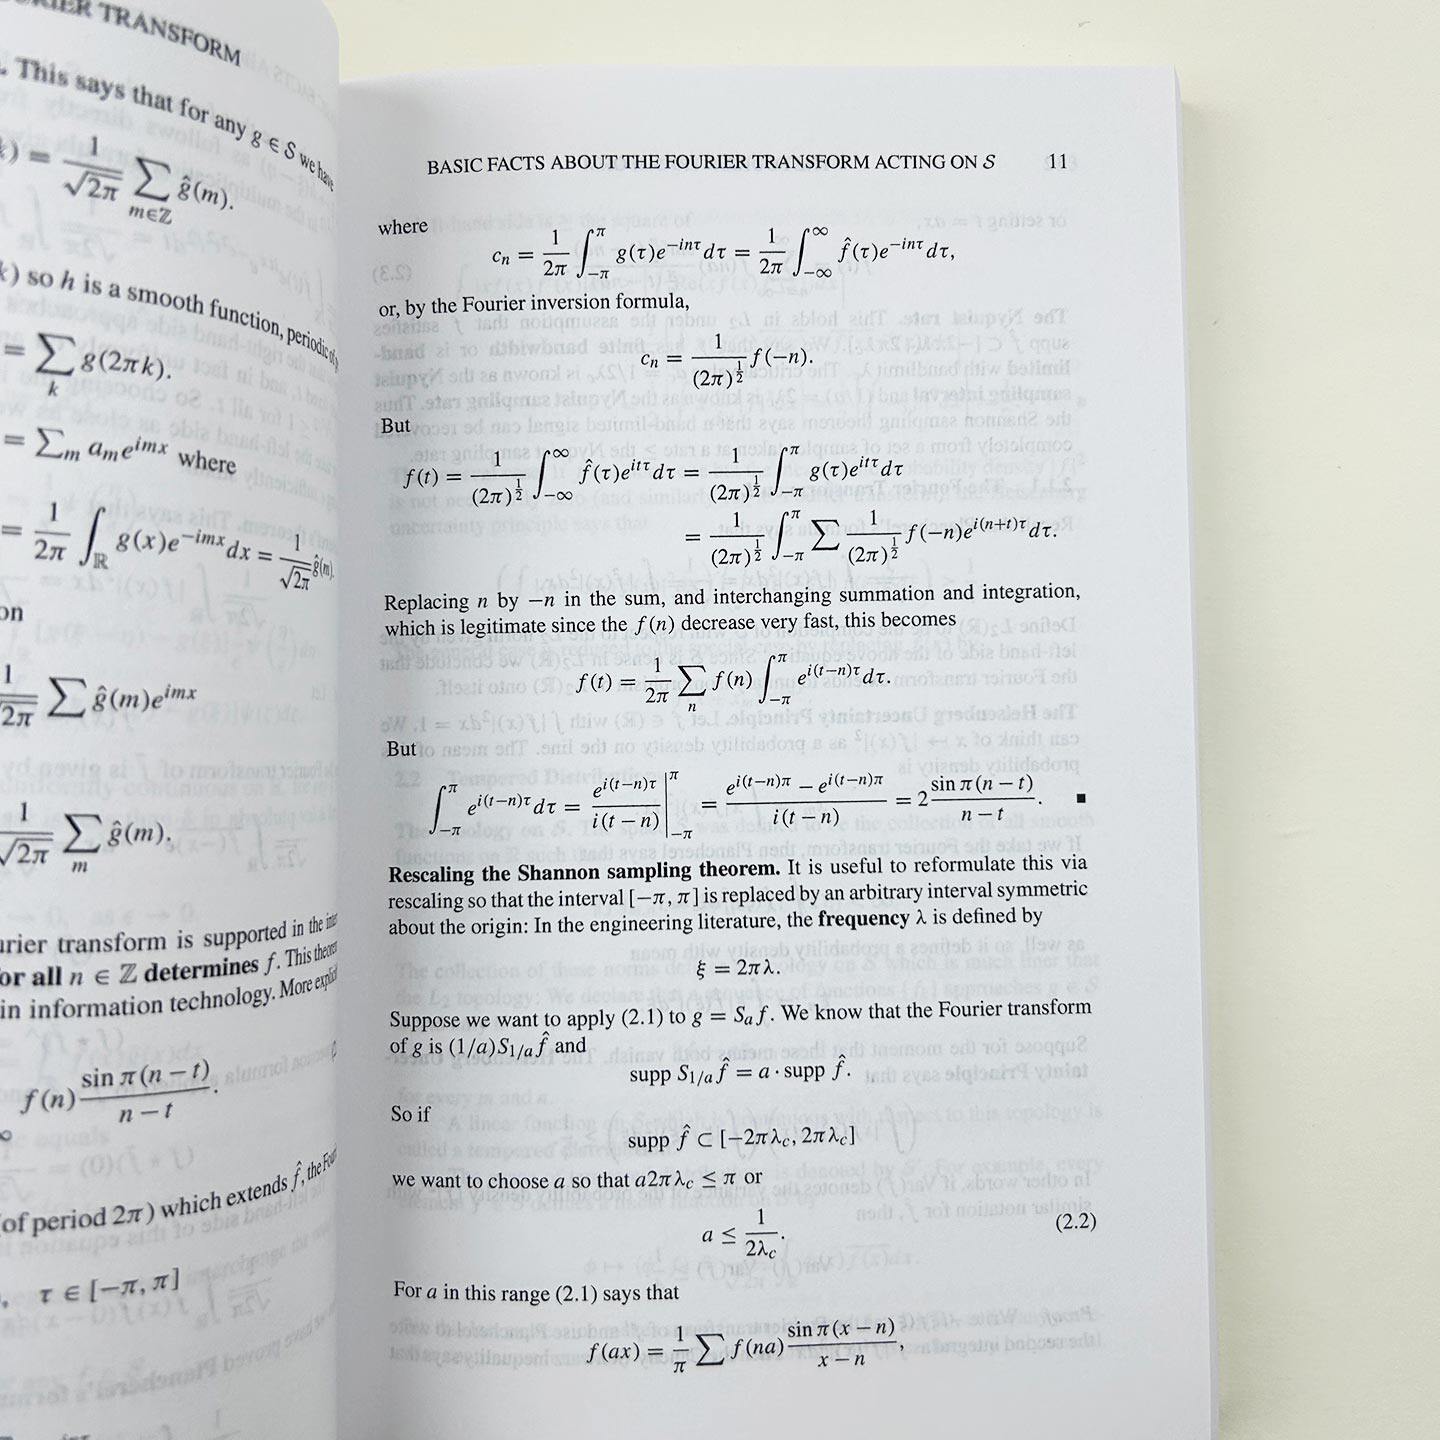 FOURIER TRANSFORM
. This says that for any g ∈ 𝒮 we have
) = 1/√2π ∑_{m∈ℤ} ĝ(m).
) so h is a smooth function, periodic of
= ∑_k g(2πk).
= ∑_m a_m e^{imx} where
= 1/2π ∫_ℝ g(x)e^{−imx} dx = 1/√2π ĝ(m).
on
1/√2π ∑ ĝ(m)e^{imx}
1/√2π ∑_m ĝ(m).
transform is supported in the
for all n ∈ ℤ determines f. This
in information technology. More
f(n) sin π(n − t)/(n − t).
∞
(of period 2π) which extends f̂, the
, τ ∈ [−π, π]
BASIC FACTS ABOUT THE FOURIER TRANSFORM ACTING ON 𝒮 11
where
c_n = 1/2π ∫_{−π}^{π} g(τ)e^{−inτ} dτ = 1/2π ∫_{−∞}^{∞} f̂(τ)e^{−inτ} dτ,
or, by the Fourier inversion formula,
c_n = 1/(2π)^{1/2} f(−n).
But
f(t) = 1/(2π)^{1/2} ∫_{−∞}^{∞} f̂(τ)e^{itτ} dτ = 1/(2π)^{1/2} ∫_{−π}^{π} g(τ)e^{itτ} dτ
= 1/(2π)^{1/2} ∫_{−π}^{π} ∑ 1/(2π)^{1/2} f(−n)e^{i(n+t)τ} dτ.
Replacing n by −n in the sum, and interchanging summation and integration,
which is legitimate since the f(n) decrease very fast, this becomes
f(t) = 1/2π ∑_n f(n) ∫_{−π}^{π} e^{i(t−n)τ} dτ.
But
∫_{−π}^{π} e^{i(t−n)τ} dτ = e^{i(t−n)τ}/i(t − n) |_{−π}^{π} = (e^{i(t−n)π} − e^{i(t−n)π})/i(t − n) = 2 sin π(n − t)/(n − t). ■
Rescaling the Shannon sampling theorem. It is useful to reformulate this via
rescaling so that the interval [−π, π] is replaced by an arbitrary interval symmetric
about the origin: In the engineering literature, the frequency λ is defined by
ξ = 2πλ.
Suppose we want to apply (2.1) to g = S_a f. We know that the Fourier transform
of g is (1/a)S_{1/a} f̂ and
supp S_{1/a} f̂ = a · supp f̂.
So if
supp f̂ ⊂ [−2πλ_c, 2πλ_c]
we want to choose a so that a2πλ_c ≤ π or
a ≤ 1/2λ_c. (2.2)
For a in this range (2.1) says that
f(ax) = 1/π ∑ f(na) sin π(x − n)/(x − n),